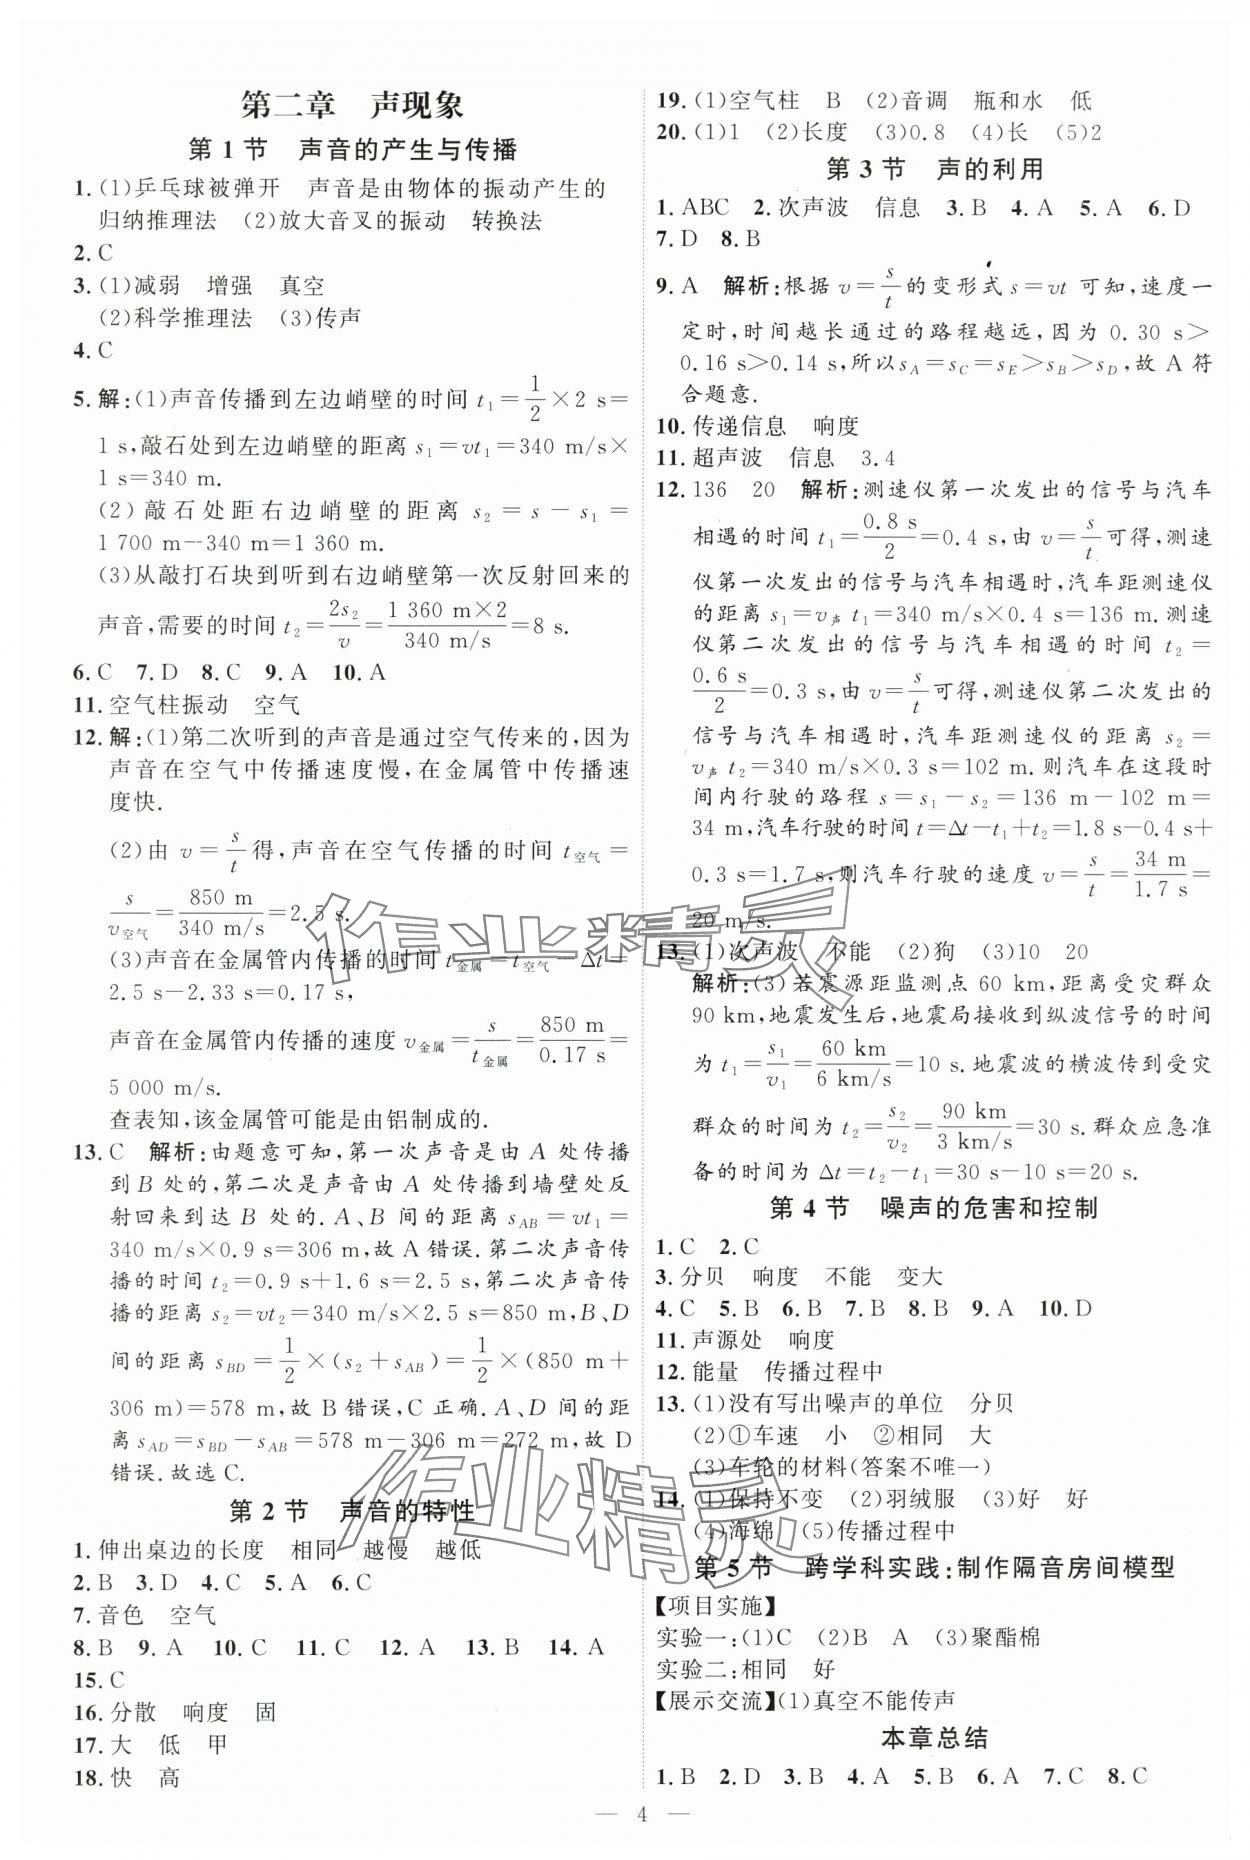 第二章　声现象
第 1 节　声音的产生与传播
1. (1)乒乓球被弹开　声音是由物体的振动产生的
归纳推理法　(2)放大音叉的振动　转换法
2. C
3. (1)减弱　增强　真空
(2)科学推理法　(3)传声
4. C
5. 解:(1)声音传播到左边峭壁的时间 t₁=1/2×2 s=
1 s,敲石处到左边峭壁的距离 s₁=vt₁=340 m/s×
1 s=340 m.
(2)敲石处距右边峭壁的距离 s₂=s-s₁=
1 700 m-340 m=1 360 m.
(3)从敲打石块到听到右边峭壁第一次反射回来的
声音,需要的时间 t₂=2s₂/v=1 360 m×2/340 m/s=8 s.
6. C　7. D　8. C　9. A　10. A
11. 空气柱振动　空气
12. 解:(1)第二次听到的声音是通过空气传来的,因为
声音在空气中传播速度慢,在金属管中传播速
度快.
(2)由 v=s/t得,声音在空气传播的时间 t空气=
s/v空气=850 m/340 m/s=2.5 s.
(3)声音在金属管内传播的时间 t金属=t空气-Δt=
2.5 s-2.33 s=0.17 s,
声音在金属管内传播的速度 v金属=s/t金属=850 m/0.17 s=
5 000 m/s.
查表知,该金属管可能是由铝制成的.
13. C　解析:由题意可知,第一次声音是由 A 处传播
到 B 处的,第二次是声音由 A 处传播到墙壁处反
射回来到达 B 处的. A、B 间的距离 sAB=vt₁=
340 m/s×0.9 s=306 m,故 A 错误. 第二次声音传
播的时间 t₂=0.9 s+1.6 s=2.5 s,第二次声音传
播的距离 s₂=vt₂=340 m/s×2.5 s=850 m,B、D
间的距离 sBD=1/2×(s₂+sAB)=1/2×(850 m+
306 m)=578 m,故 B 错误,C 正确. A、D 间的距
离 sAD=sBD-sAB=578 m-306 m=272 m,故 D
错误. 故选 C.
第 2 节　声音的特性
1. 伸出桌边的长度　相同　越慢　越低
2. B　3. D　4. C　5. A　6. C
7. 音色　空气
8. B　9. A　10. C　11. C　12. A　13. B　14. A
15. C
16. 分散　响度　固
17. 大　低　甲
18. 快　高
19. (1)空气柱　B　(2)音调　瓶和水　低
20. (1)1　(2)长度　(3)0.8　(4)长　(5)2
第 3 节　声的利用
1. ABC　2. 次声波　信息　3. B　4. A　5. A　6. D
7. D　8. B
9. A　解析:根据 v=s/t的变形式 s=vt 可知,速度一
定时,时间越长通过的路程越远,因为 0.30 s>
0.16 s>0.14 s,所以 sA=sC=sE>sB>sD,故 A 符
合题意.
10. 传递信息　响度
11. 超声波　信息　3.4
12. 136　20　解析:测速仪第一次发出的信号与汽车
相遇的时间 t₁=0.8 s/2=0.4 s,由 v=s/t可得,测速
仪第一次发出的信号与汽车相遇时,汽车距测速仪
的距离 s₁=v声 t₁=340 m/s×0.4 s=136 m. 测速
仪第二次发出的信号与汽车相遇的时间 t₂=
0.6 s/2=0.3 s,由 v=s/t可得,测速仪第二次发出的
信号与汽车相遇时,汽车距测速仪的距离 s₂=
v声 t₂=340 m/s×0.3 s=102 m. 则汽车在这段时
间内行驶的路程 s=s₁-s₂=136 m-102 m=
34 m,汽车行驶的时间 t=Δt-t₁+t₂=1.8 s-0.4 s+
0.3 s=1.7 s,则汽车行驶的速度 v=s/t=34 m/1.7 s=
20 m/s.
13. (1)次声波　不能　(2)狗　(3)10　20
解析:(3)若震源距监测点 60 km,距离受灾群众
90 km,地震发生后,地震局接收到纵波信号的时间
为 t₁=s₁/v₁=60 km/6 km/s=10 s. 地震波的横波传到受灾
群众的时间为 t₂=s₂/v₂=90 km/3 km/s=30 s. 群众应急准
备的时间为 Δt=t₂-t₁=30 s-10 s=20 s.
第 4 节　噪声的危害和控制
1. C　2. C
3. 分贝　响度　不能　变大
4. C　5. B　6. B　7. B　8. B　9. A　10. D
11. 声源处　响度
12. 能量　传播过程中
13. (1)没有写出噪声的单位　分贝
(2)①车速　小　②相同　大
(3)车轮的材料(答案不唯一)
14. (1)保持不变　(2)羽绒服　(3)好　好
(4)海绵　(5)传播过程中
第 5 节　跨学科实践:制作隔音房间模型
【项目实施】
实验一:(1)C　(2)B　A　(3)聚酯棉
实验二:相同　好
【展示交流】(1)真空不能传声
本章总结
1. B　2. D　3. B　4. A　5. B　6. A　7. C　8. C
— 4 —
作业精灵
作业精灵